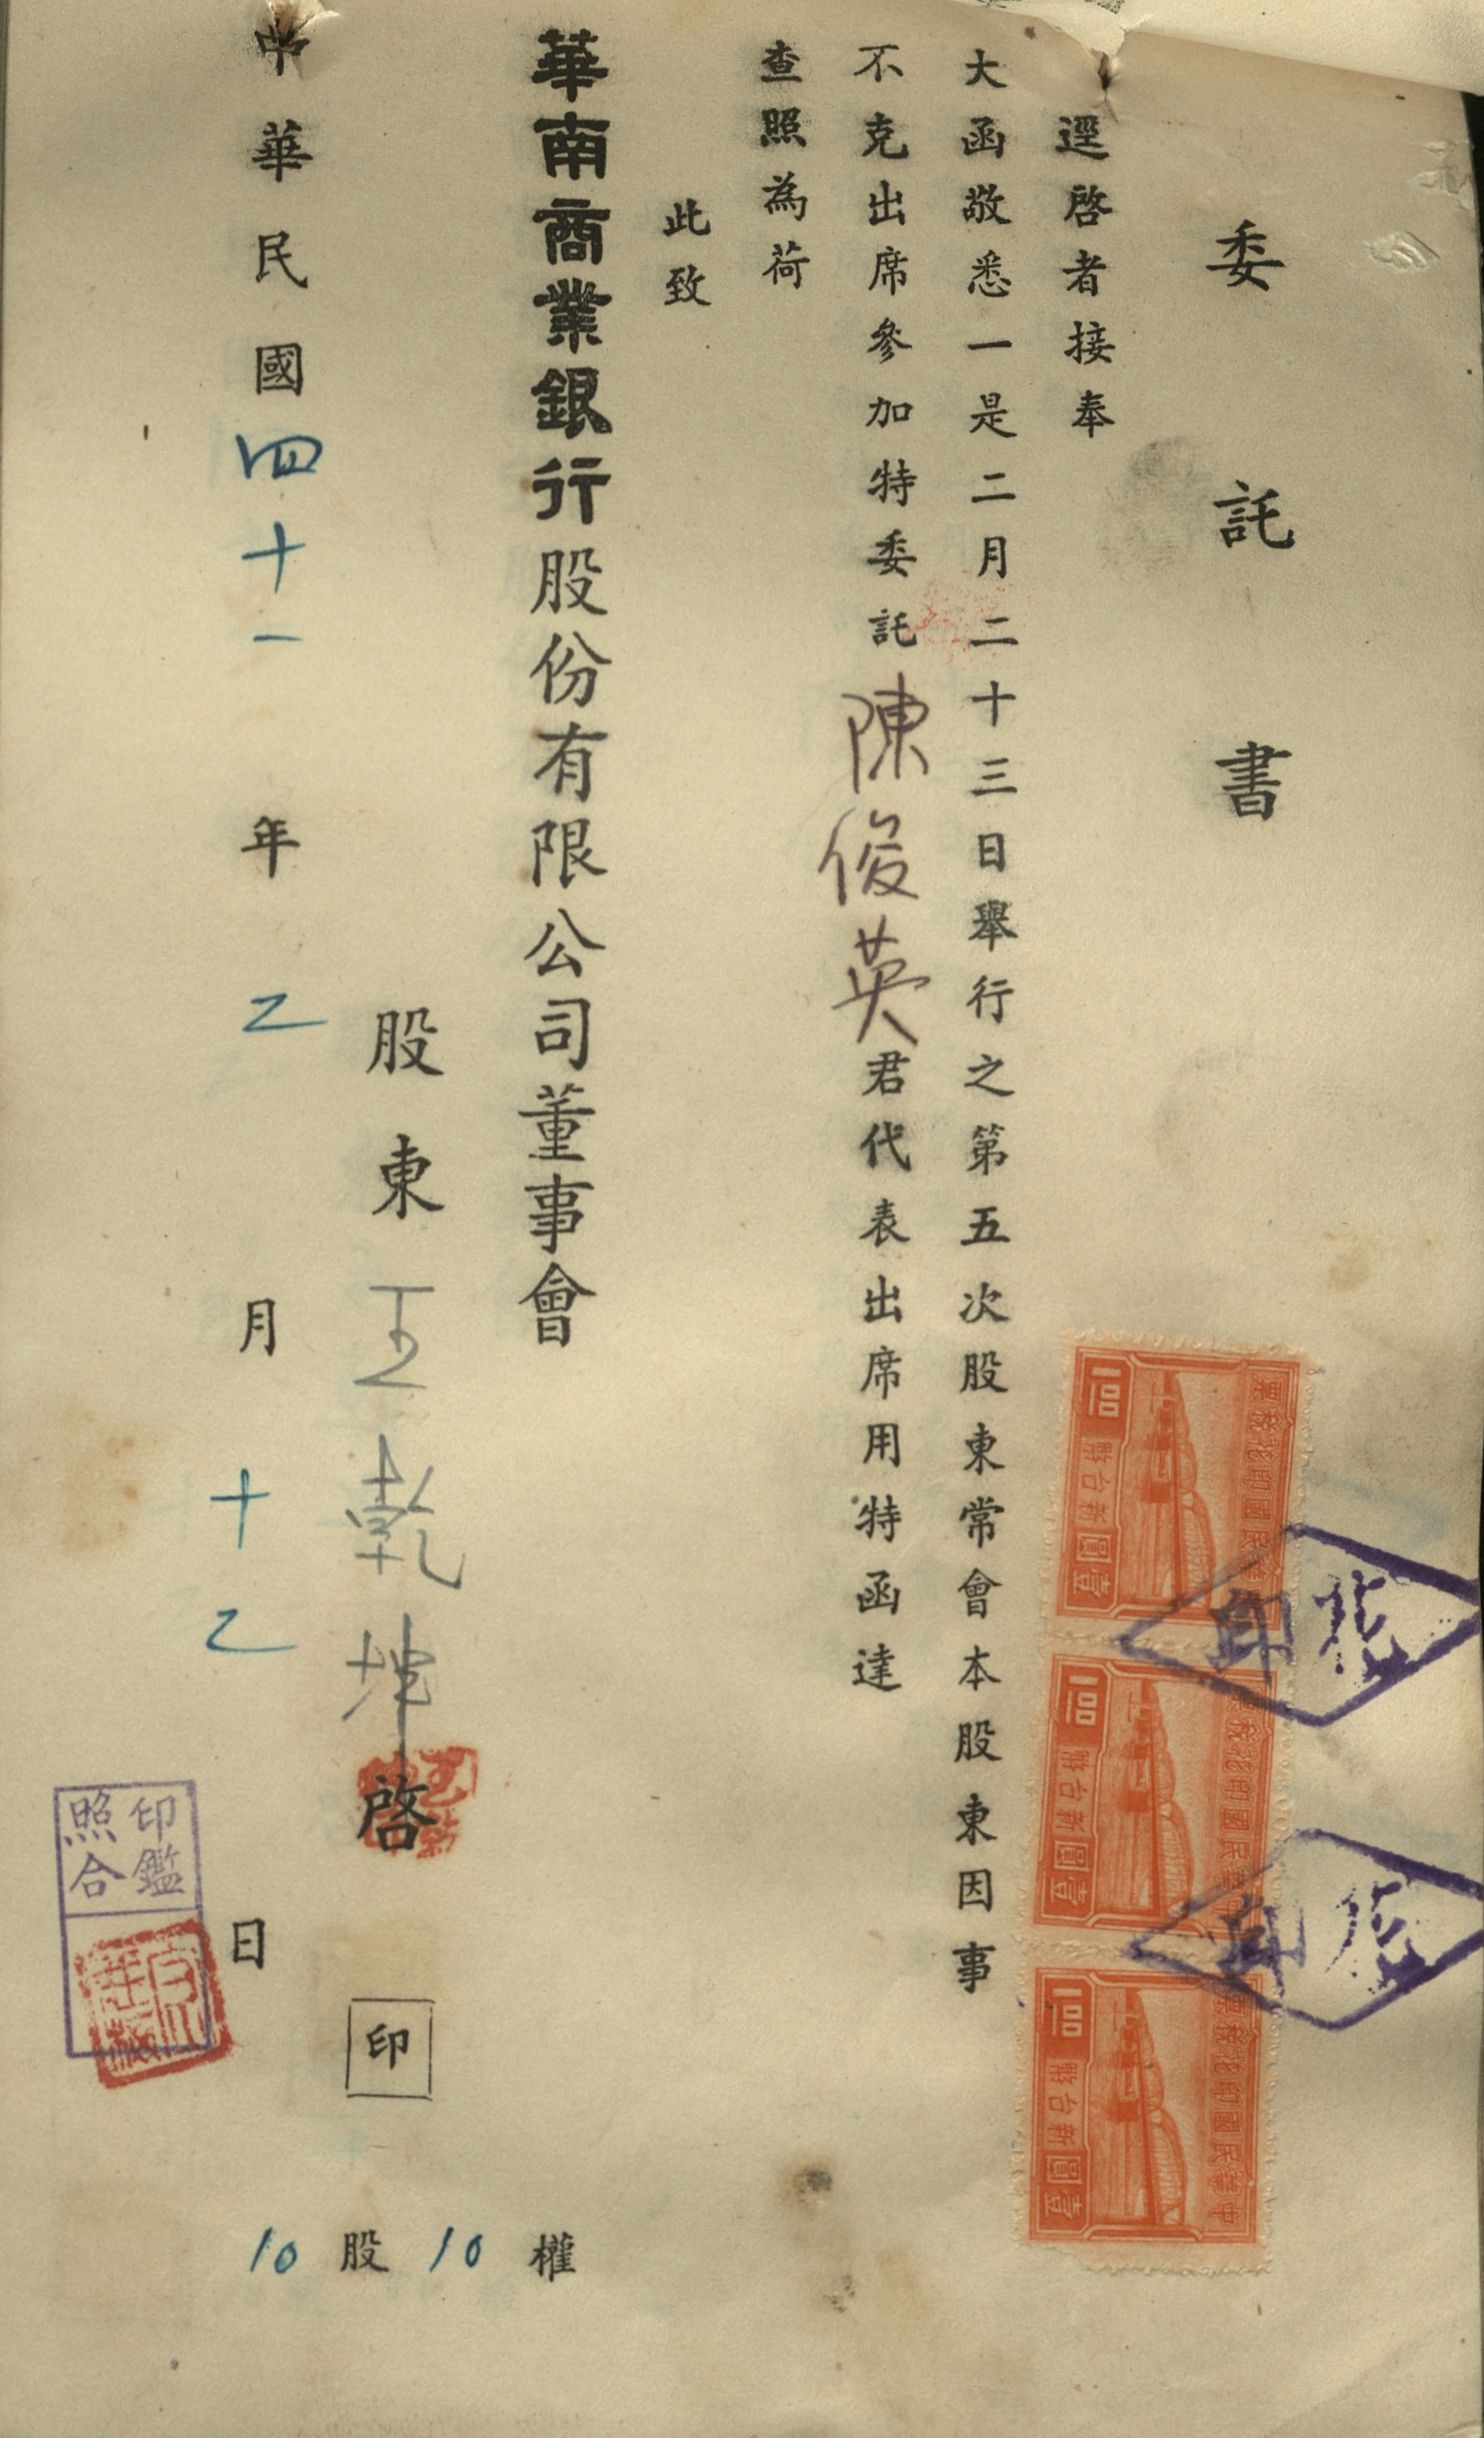 委託書
逕啓者接奉
大函敬悉一是二月二十三日舉行之第五次股東常會本股東因事
不克出席參加特委託陳俊英君代表出席用特函達
查照為荷
此致
華南商業銀行股份有限公司董事會
股東王乾坤啓
印
中華民國四十一年乙月十乙日
10股10權
印鑑
照合
中華民國印花稅票
1.00
新台幣壹圓
中華民國印花稅票
1.00
新台幣壹圓
中華民國印花稅票
1.00
新台幣壹圓
印花